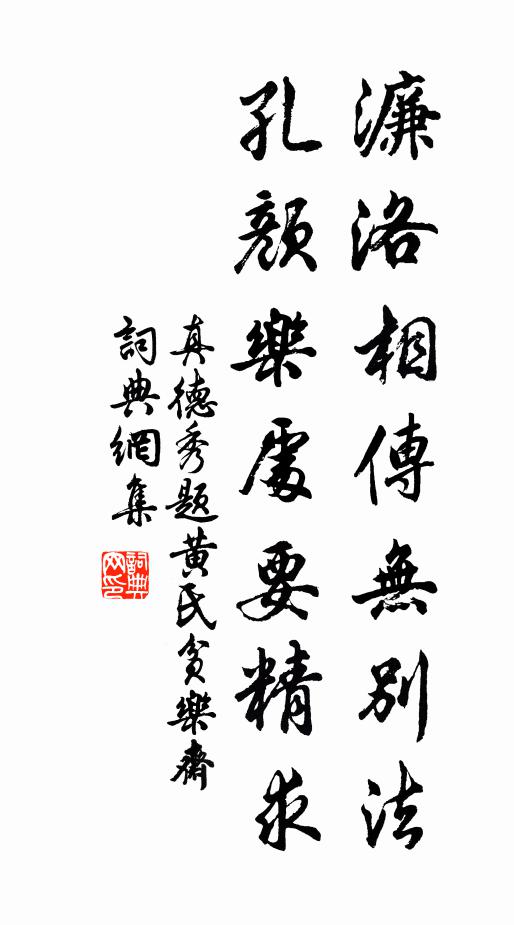 濂洛相傳無別法
孔顏樂處要精求
真德秀題黃氏貧樂齋
詞典網集
詞典网印